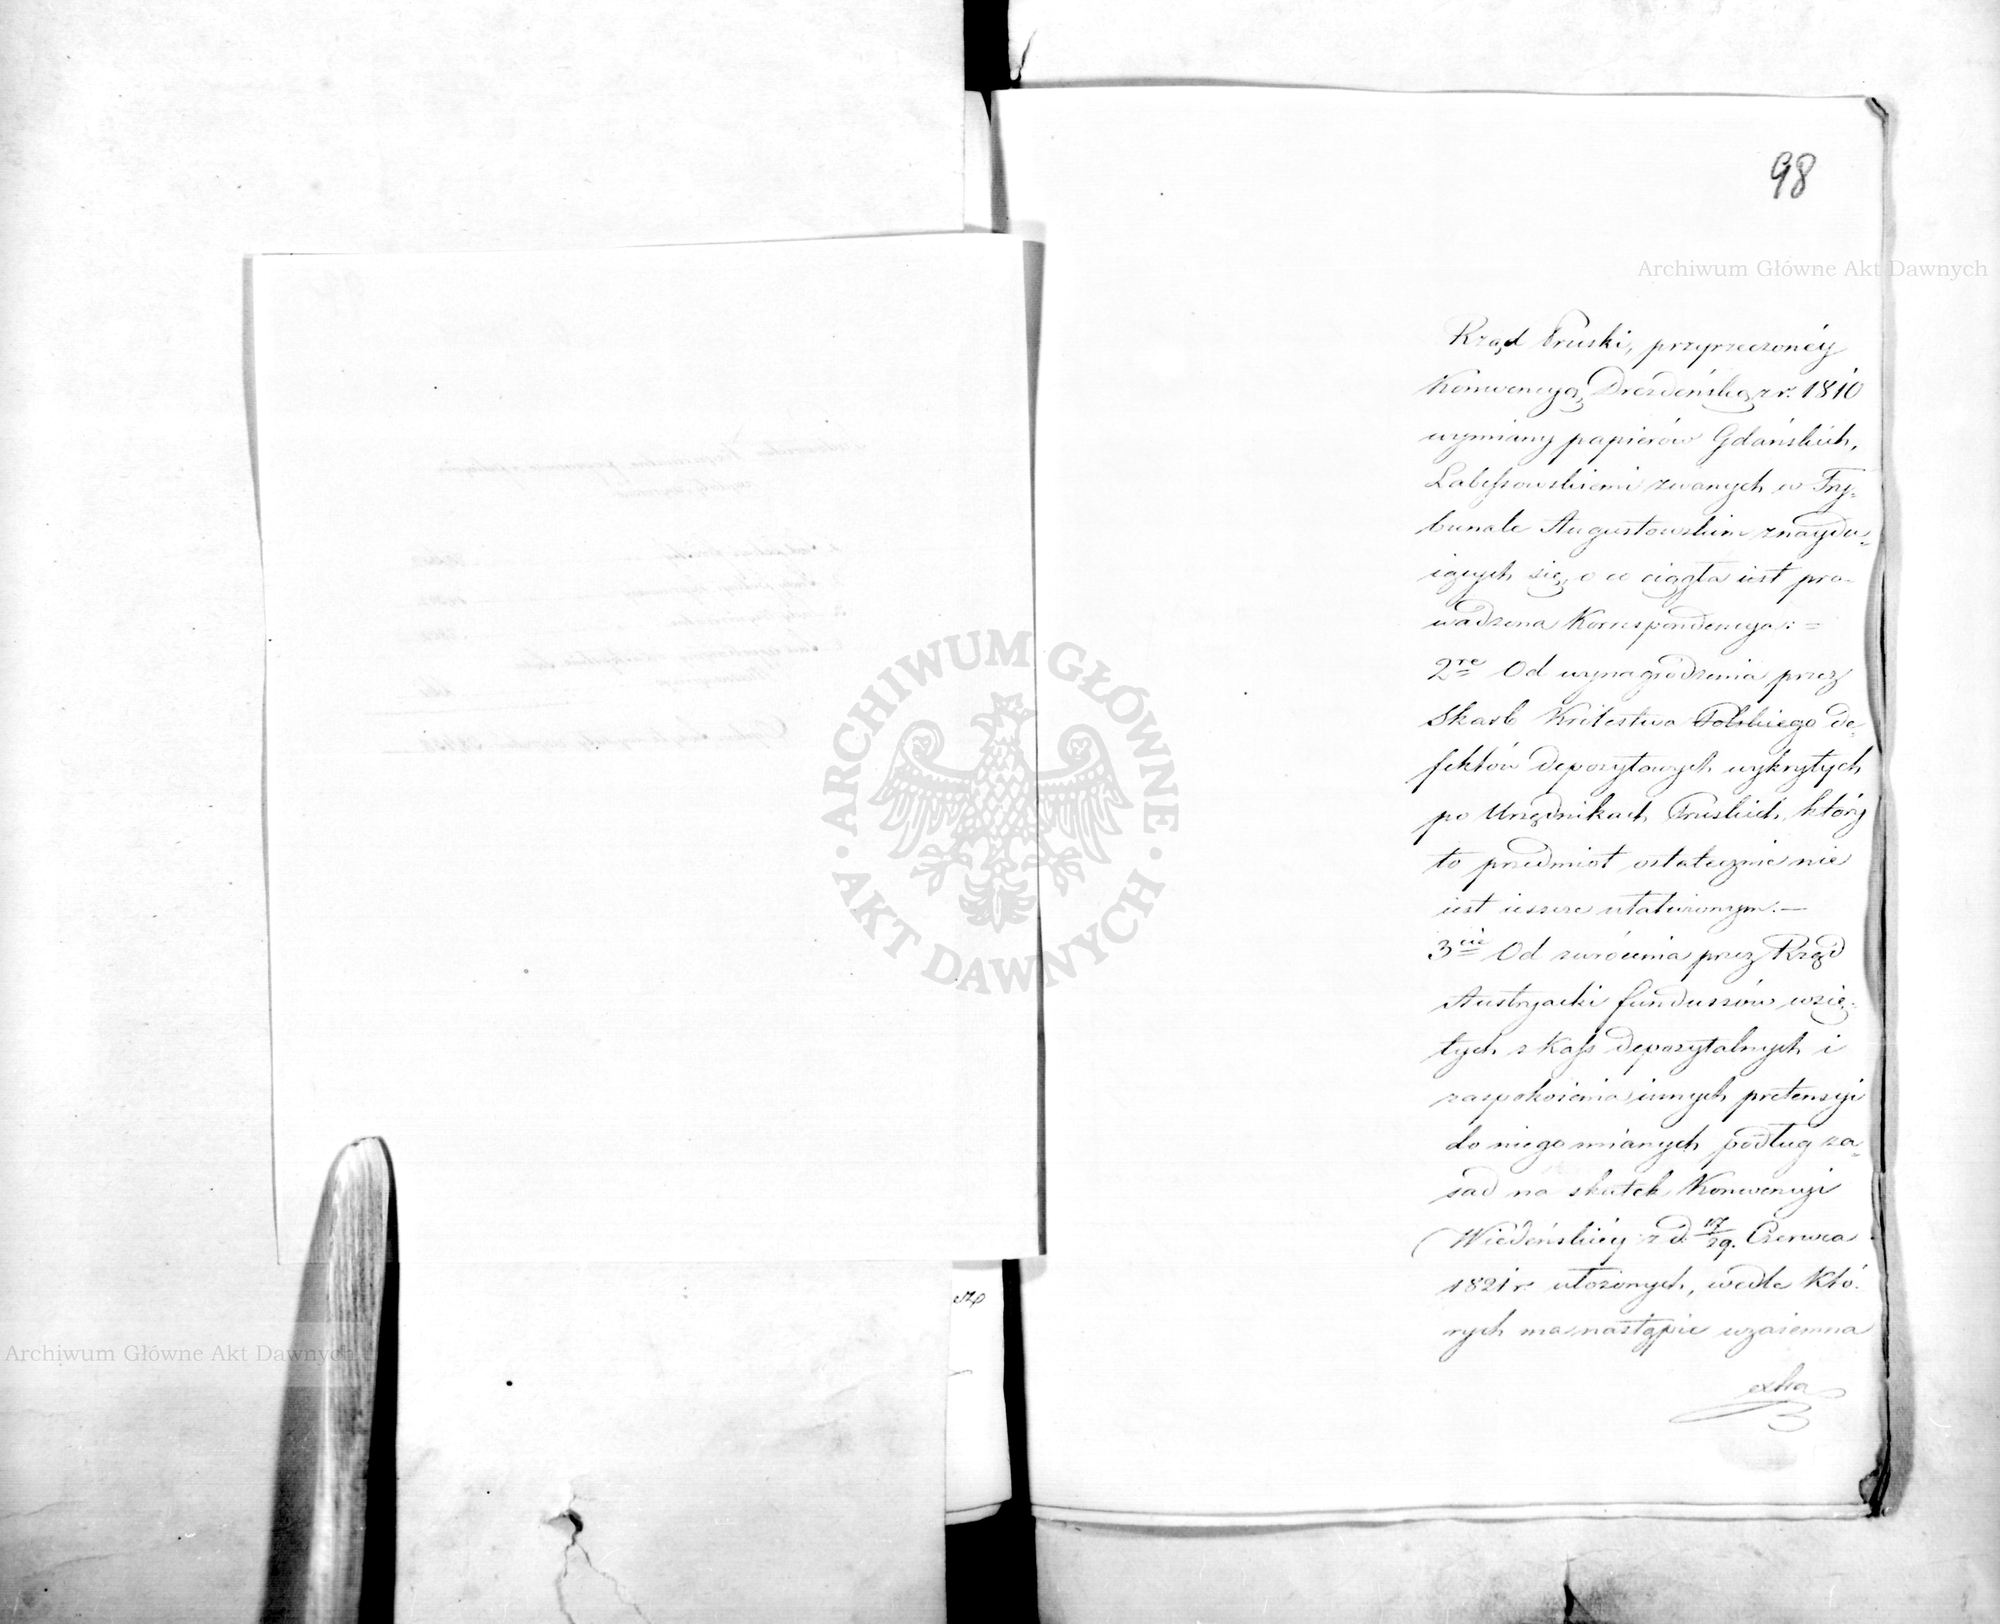 98
Archiwum Główne Akt Dawnych
Rząd Pruski, przyrzeczonéy
Konwencyą Dreźdeńską z r. 1810
wymiany papierów Gdańskich,
Labessowskiemi zwanych w Try-
bunale Augustowskim znaydu-
iących się, o co ciągła iest pro-
wadzona Korrespondencya: =
2re Od wynagrodzenia przez
Skarb Królestwa Polskiego de-
fektów depozytowych wykrytych
po Urzędnikach Pruskich, który
to przedmiot ostatecznie nie
iest ieszcze ułatwionym. —
3cie Od zwrócenia przez Rząd
Austryacki funduszów wzię-
tych z Kass depozytalnych i
zaspokoienia innych pretensyi
do niego mianych podług za-
sad na skutek Konwencyi
Wiedeńskiéy z d. 17/29. Czerwca
1821 r. ułożonych, wedle któ-
rych ma nastąpić wzaiemna
ARCHIWUM GŁÓWNE
AKT DAWNYCH
Archiwum Główne Akt Dawnych